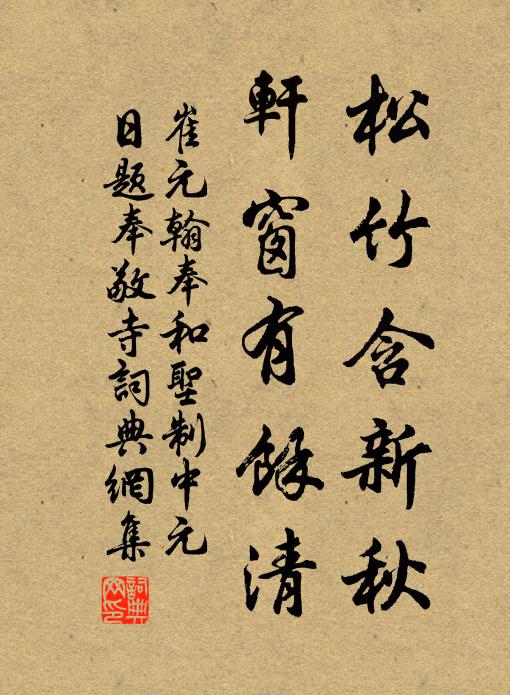 松竹含新秋
軒窗有餘清
崔元翰奉和聖制中元
日題奉敬寺詞典網集
詞典网印